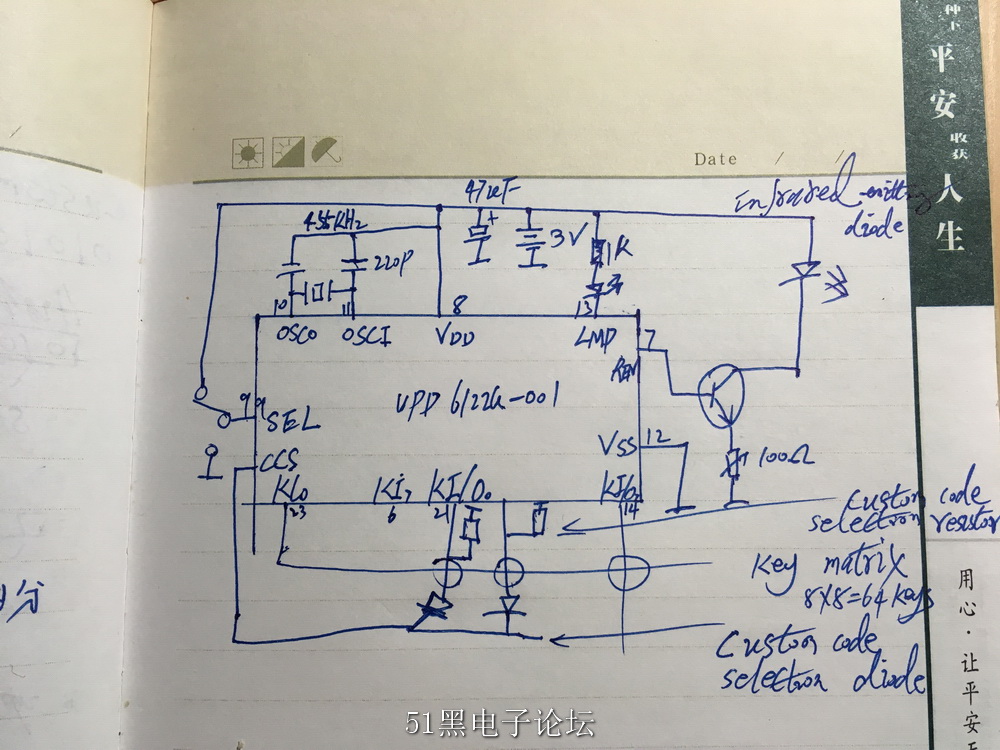 种下
平安
收获
人生
Date / /
47uF
infrared-emitting
diode
455KHz
220P
3V
1K
10
11
8
13
OSCO
OSCI
VDD
LMP
7
REM
UPD 6122G-001
9
SEL
VSS
12
100Ω
CCS
KI0
KI7
KI/O0
KI/O7
23
6
21
14
Custom code
selection resistor
Key matrix
8X8=64 keys
Custom code
selection diode
分
用心·让平安
51黑电子论坛